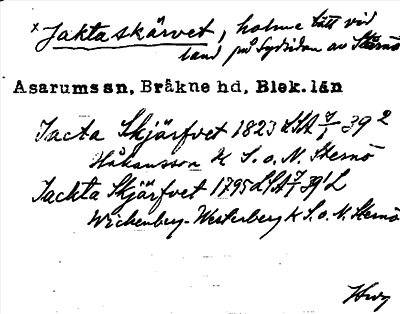 x Jaktaskärvet, holme tätt vid
land på Sydsidan av Sternö
Asarums sn, Bräkne hd, Blek. län
Jacta Skjärfvet 1823 LSA 7/1 39 2
Håkansson K S. o. N. Sternö
Jackta Skjärfvet 1795 LSA 7/1 39' L
Wickenberg-Westerberg K S. o. N. Sternö